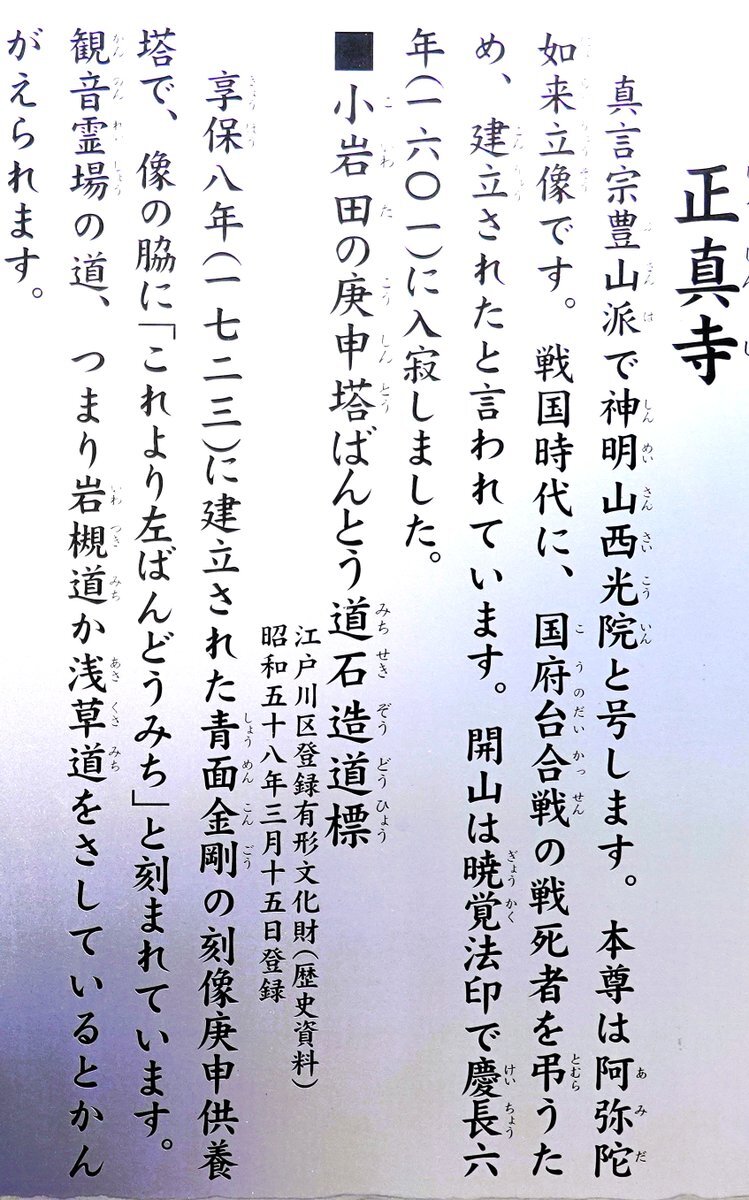 正真寺
真言宗豊山派で神明山西光院と号します。本尊は阿弥陀
如来立像です。戦国時代に、国府台合戦の戦死者を弔うた
め、建立されたと言われています。開山は暁覚法印で慶長六
年(一六〇一)に入寂しました。
■小岩田の庚申塔ばんとう道石造道標
江戸川区登録有形文化財(歴史資料)
昭和五十八年三月十五日登録
享保八年(一七二三)に建立された青面金剛の刻像庚申供養
塔で、像の脇に「これより左ばんどうみち」と刻まれています。
観音霊場の道、つまり岩槻道か浅草道をさしているとかん
がえられます。